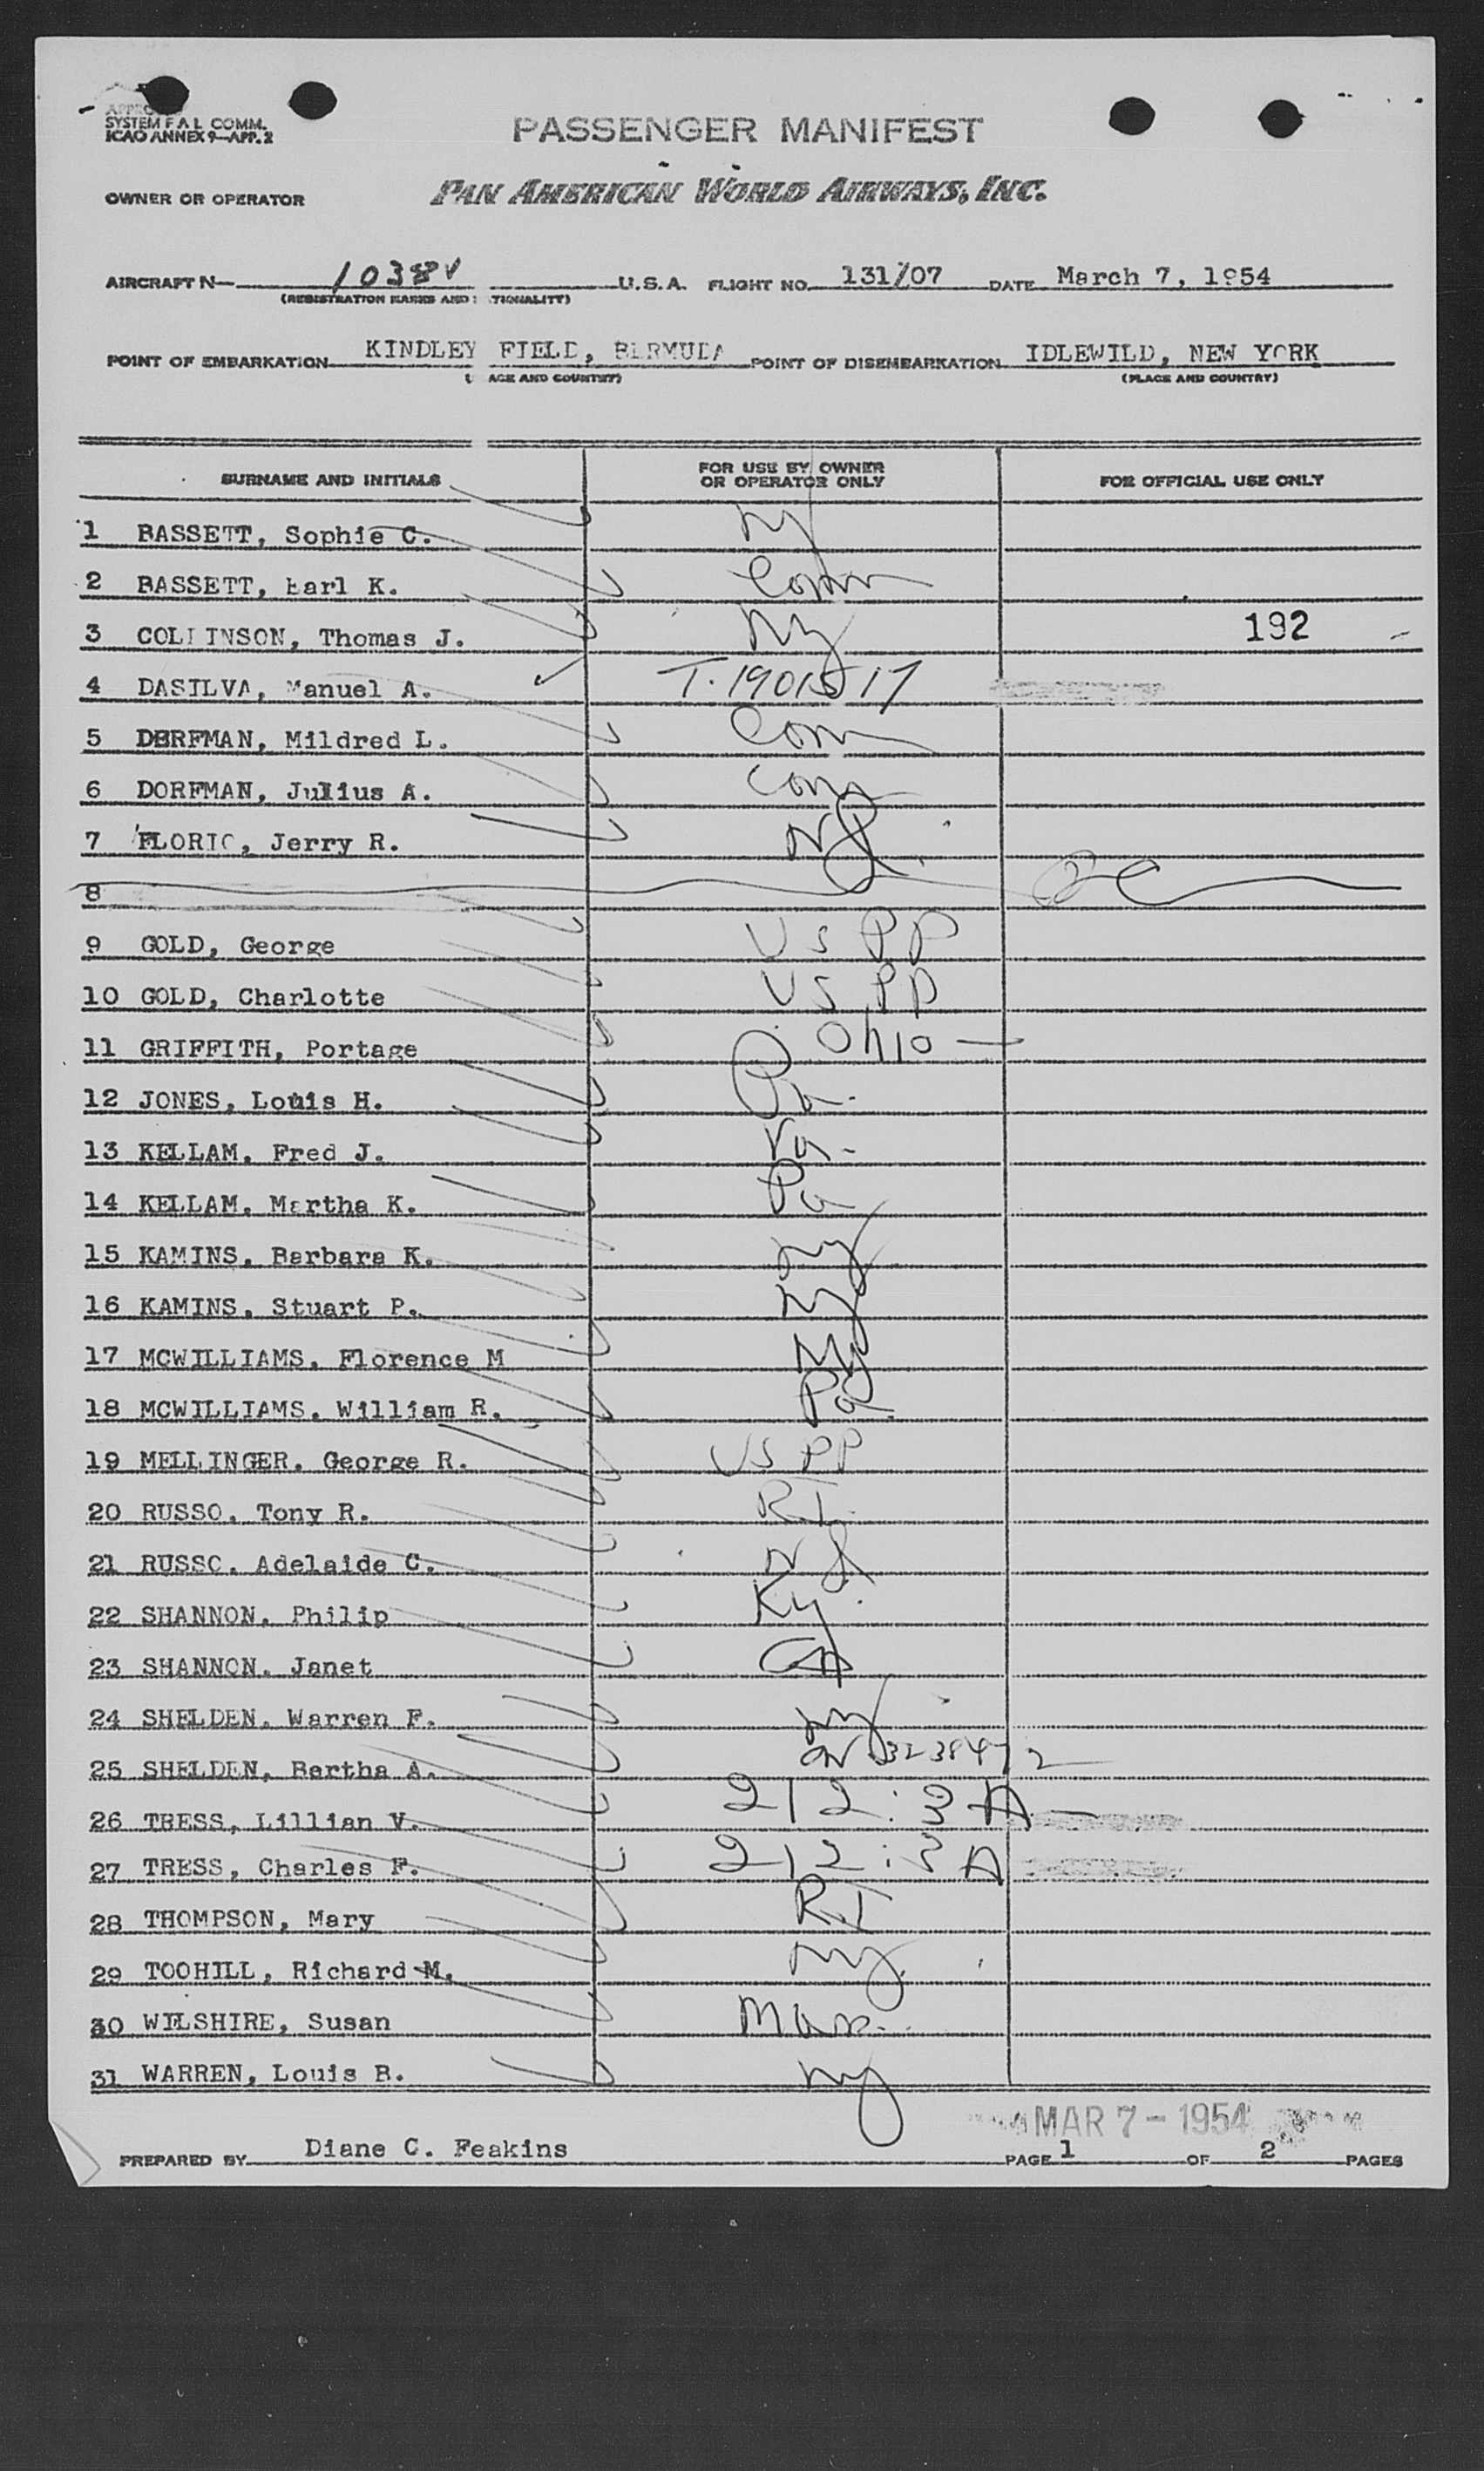 SYSTEM F A L COMM.
ICAO ANNEX 9—APP. 2
PASSENGER MANIFEST
OWNER OR OPERATOR PAN AMERICAN WORLD AIRWAYS, INC.
AIRCRAFT N— 1038V U.S.A. FLIGHT NO. 131/07 DATE March 7, 1954
(REGISTRATION MARKS AND
POINT OF EMBARKATION KINDLEY FIELD, BERMUDA POINT OF DISEMBARKATION IDLEWILD, NEW YORK
AND COUNTRY) (PLACE AND COUNTRY)
SURNAME AND INITIALS FOR USE BY OWNER OR OPERATOR ONLY FOR OFFICIAL USE ONLY
1 BASSETT, Sophie C. NY
2 BASSETT, Earl K. Conn
3 COLLINSON, Thomas J. NY 192
4 DASILVA, Manuel A. T.
5 DORFMAN, Mildred L. Conn
6 DORFMAN, Julius A. Conn
7 FLORIO, Jerry R. NJ.
8
9 GOLD, George US PP
10 GOLD, Charlotte US PP
11 GRIFFITH, Portage Ohio
12 JONES, Louis H. Pa.
13 KELLAM. Fred J. Va.
14 KELLAM. Martha K. Pa
15 KAMINS. Barbara K. NY
16 KAMINS. Stuart P. NY
17 MCWILLIAMS. Florence M NY
18 MCWILLIAMS. William R. Pa.
19 MELLINGER. George R. US PP
20 RUSSO. Tony R. R.I.
21 RUSSO. Adelaide C. NJ
22 SHANNON. Philip Ky.
23 SHANNON. Janet
24 SHELDEN. Warren F. NY
25 SHELDEN, Bertha A.
26 TRESS, Lillian V. 212:3 A
27 TRESS, Charles F. 212:3 A
28 THOMPSON, Mary R.I
29 TOOHILL, Richard M. NY.
30 WILSHIRE, Susan Mass.
31 WARREN, Louis B. NY
MAR 7 - 1954
PREPARED BY Diane C. Feakins PAGE 1 OF 2 PAGES